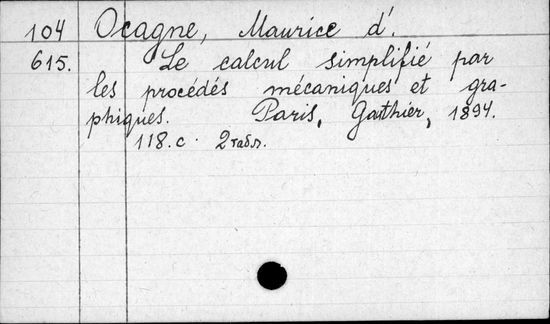 104 Ocagne, Maurice d'.
615. Le calcul simplifié par
les procédés mécaniques et gra-
phiques. Paris, Gauthier, 1894.
118.c. 2табл.